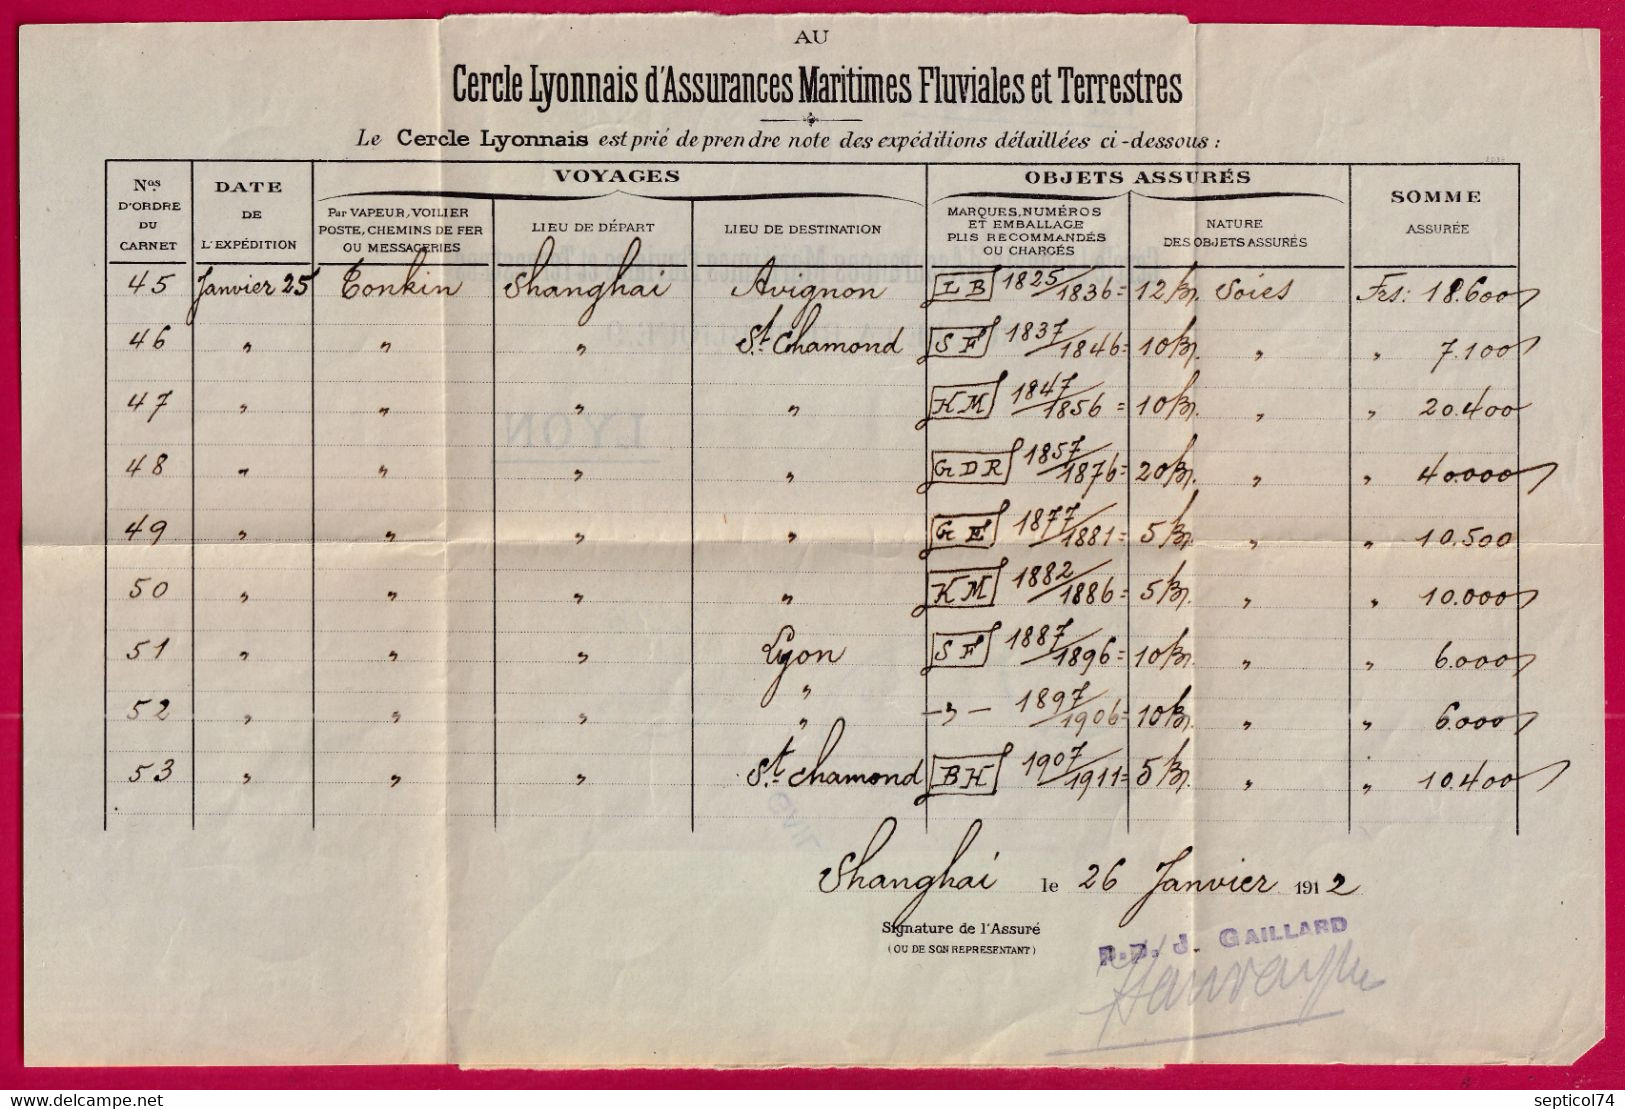 AU
Cercle Lyonnais d'Assurances Maritimes Fluviales et Terrestres
Le Cercle Lyonnais est prié de prendre note des expéditions détaillées ci-dessous :
Nos D'ORDRE DU CARNET | DATE DE L'EXPÉDITION | VOYAGES | OBJETS ASSURÉS | SOMME ASSURÉE
Par VAPEUR, VOILIER POSTE, CHEMINS DE FER OU MESSAGERIES | LIEU DE DÉPART | LIEU DE DESTINATION | MARQUES, NUMÉROS ET EMBALLAGE PLIS RECOMMANDÉS OU CHARGÉS | NATURE DES OBJETS ASSURÉS
45 Janvier 25 Tonkin Shanghai Avignon LB 1825/1836 = 12 Bn. Soies Frs: 18.600
46 " " " St. Chamond SF 1837/1846 = 10 Bn. " " 7.100
47 " " " " KM 1847/1856 = 10 Bn. " " 20.400
48 " " " " GDR 1857/1876 = 20 Bn. " " 40.000
49 " " " " GE 1877/1881 = 5 Bn. " " 10.500
50 " " " " KM 1882/1886 = 5 Bn. " " 10.000
51 " " " Lyon SF 1887/1896 = 10 Bn. " " 6.000
52 " " " " -"- 1897/1906 = 10 Bn. " " 6.000
53 " " " St. Chamond BH 1907/1911 = 5 Bn. " " 10.400
Shanghai le 26 Janvier 1912
Signature de l'Assuré
(OU DE SON REPRESENTANT)
P.P. J. GAILLARD
LYON
delcampe.net
septicol74